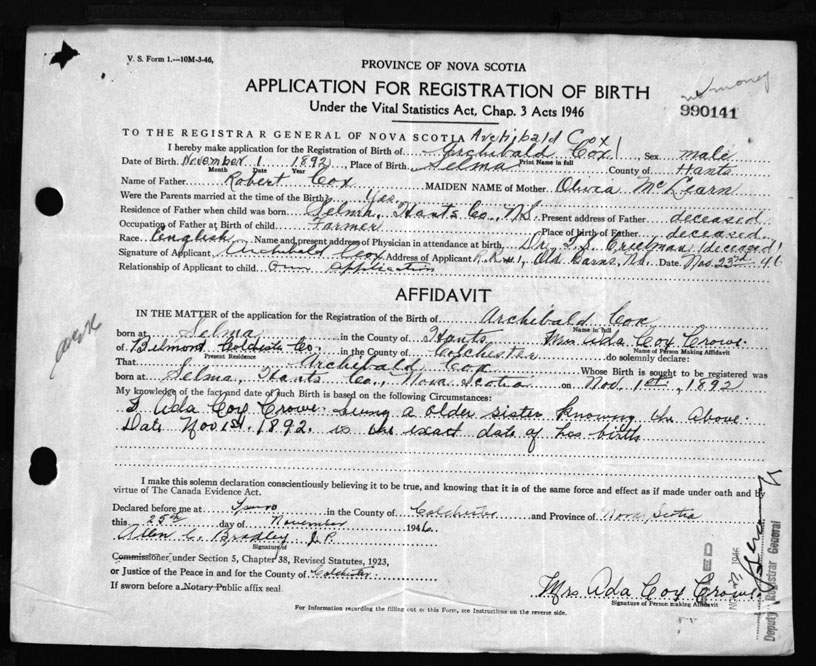 V. S. Form 1.—10M-3-46,
PROVINCE OF NOVA SCOTIA
no money
APPLICATION FOR REGISTRATION OF BIRTH
990141
Under the Vital Statistics Act, Chap. 3 Acts 1946
TO THE REGISTRAR GENERAL OF NOVA SCOTIA Archibald Cox
I hereby make application for the Registration of Birth of Archibald Cox Sex male
Print Name in full
Date of Birth November 1 1892, Place of Birth, Selma County of Hants
Month Date Year
Name of Father Robert Cox MAIDEN NAME of Mother Olivia McLearn
Were the Parents married at time of the Birth? Yes.
Residence of Father when child was born Selma, Hants Co, N.S. Present address of Father deceased
Occupation of Father at Birth of child Farmer Place of birth of Father deceased
Race English Name and present address of Physician in attendance at birth, Dr. Creelman (deceased)
Signature of Applicant Archibald Cox Address of Applicant R.R #1, Old Barns, N.S. Date Nov. 23rd 46
Relationship of Applicant to child Own application
AFFIDAVIT
work
IN THE MATTER of the application for the Registration of the Birth of Archibald Cox
Name in full
born at Selma in the County of Hants Mrs Ada Coy Crowe
Name of Person Making Affidavit
of Belmont Colchester Co. in the County of Colchester do solemnly declare:
Present Residence
That Archibald Cox Whose Birth is sought to be registered was
born at Selma, Hants Co, Nova Scotia on Nov. 1st, 1892
My knowledge of the fact and date of such Birth is based on the following Circumstances:
I Ada Coy Crowe being a older sister knowing the above
Date Nov 1st, 1892. is the exact date of his birth
I make this solemn declaration conscientiously believing it to be true, and knowing that it is of the same force and effect as if made under oath and by
virtue of The Canada Evidence Act.
Declared before me at Truro in the County of Colchester and Province of Nova Scotia
this 25th day of November 1946
Allen C. Bradley J.P.
Signature of
Commissioner under Section 5, Chapter 38, Revised Statutes, 1923,
or Justice of the Peace in and for the County of Colchester
If sworn before a Notary Public affix seal
Mrs Ada Coy Crowe
Signature of Person making Affidavit
For Information regarding the filling out of this Form, see Instructions on the reverse side.
NOV 27 1946
Deputy Registrar General